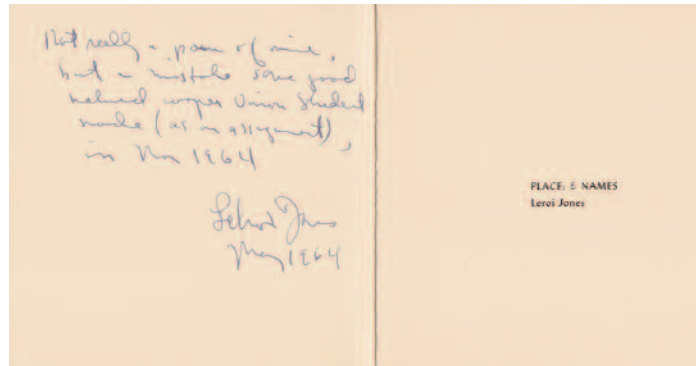 Not really a poem of mine,
but a mistake some good
natured cooper Union Student
made (as an assignment),
in May 1964
LeRoi Jones
May 1964
PLACE, & NAMES
Leroi Jones